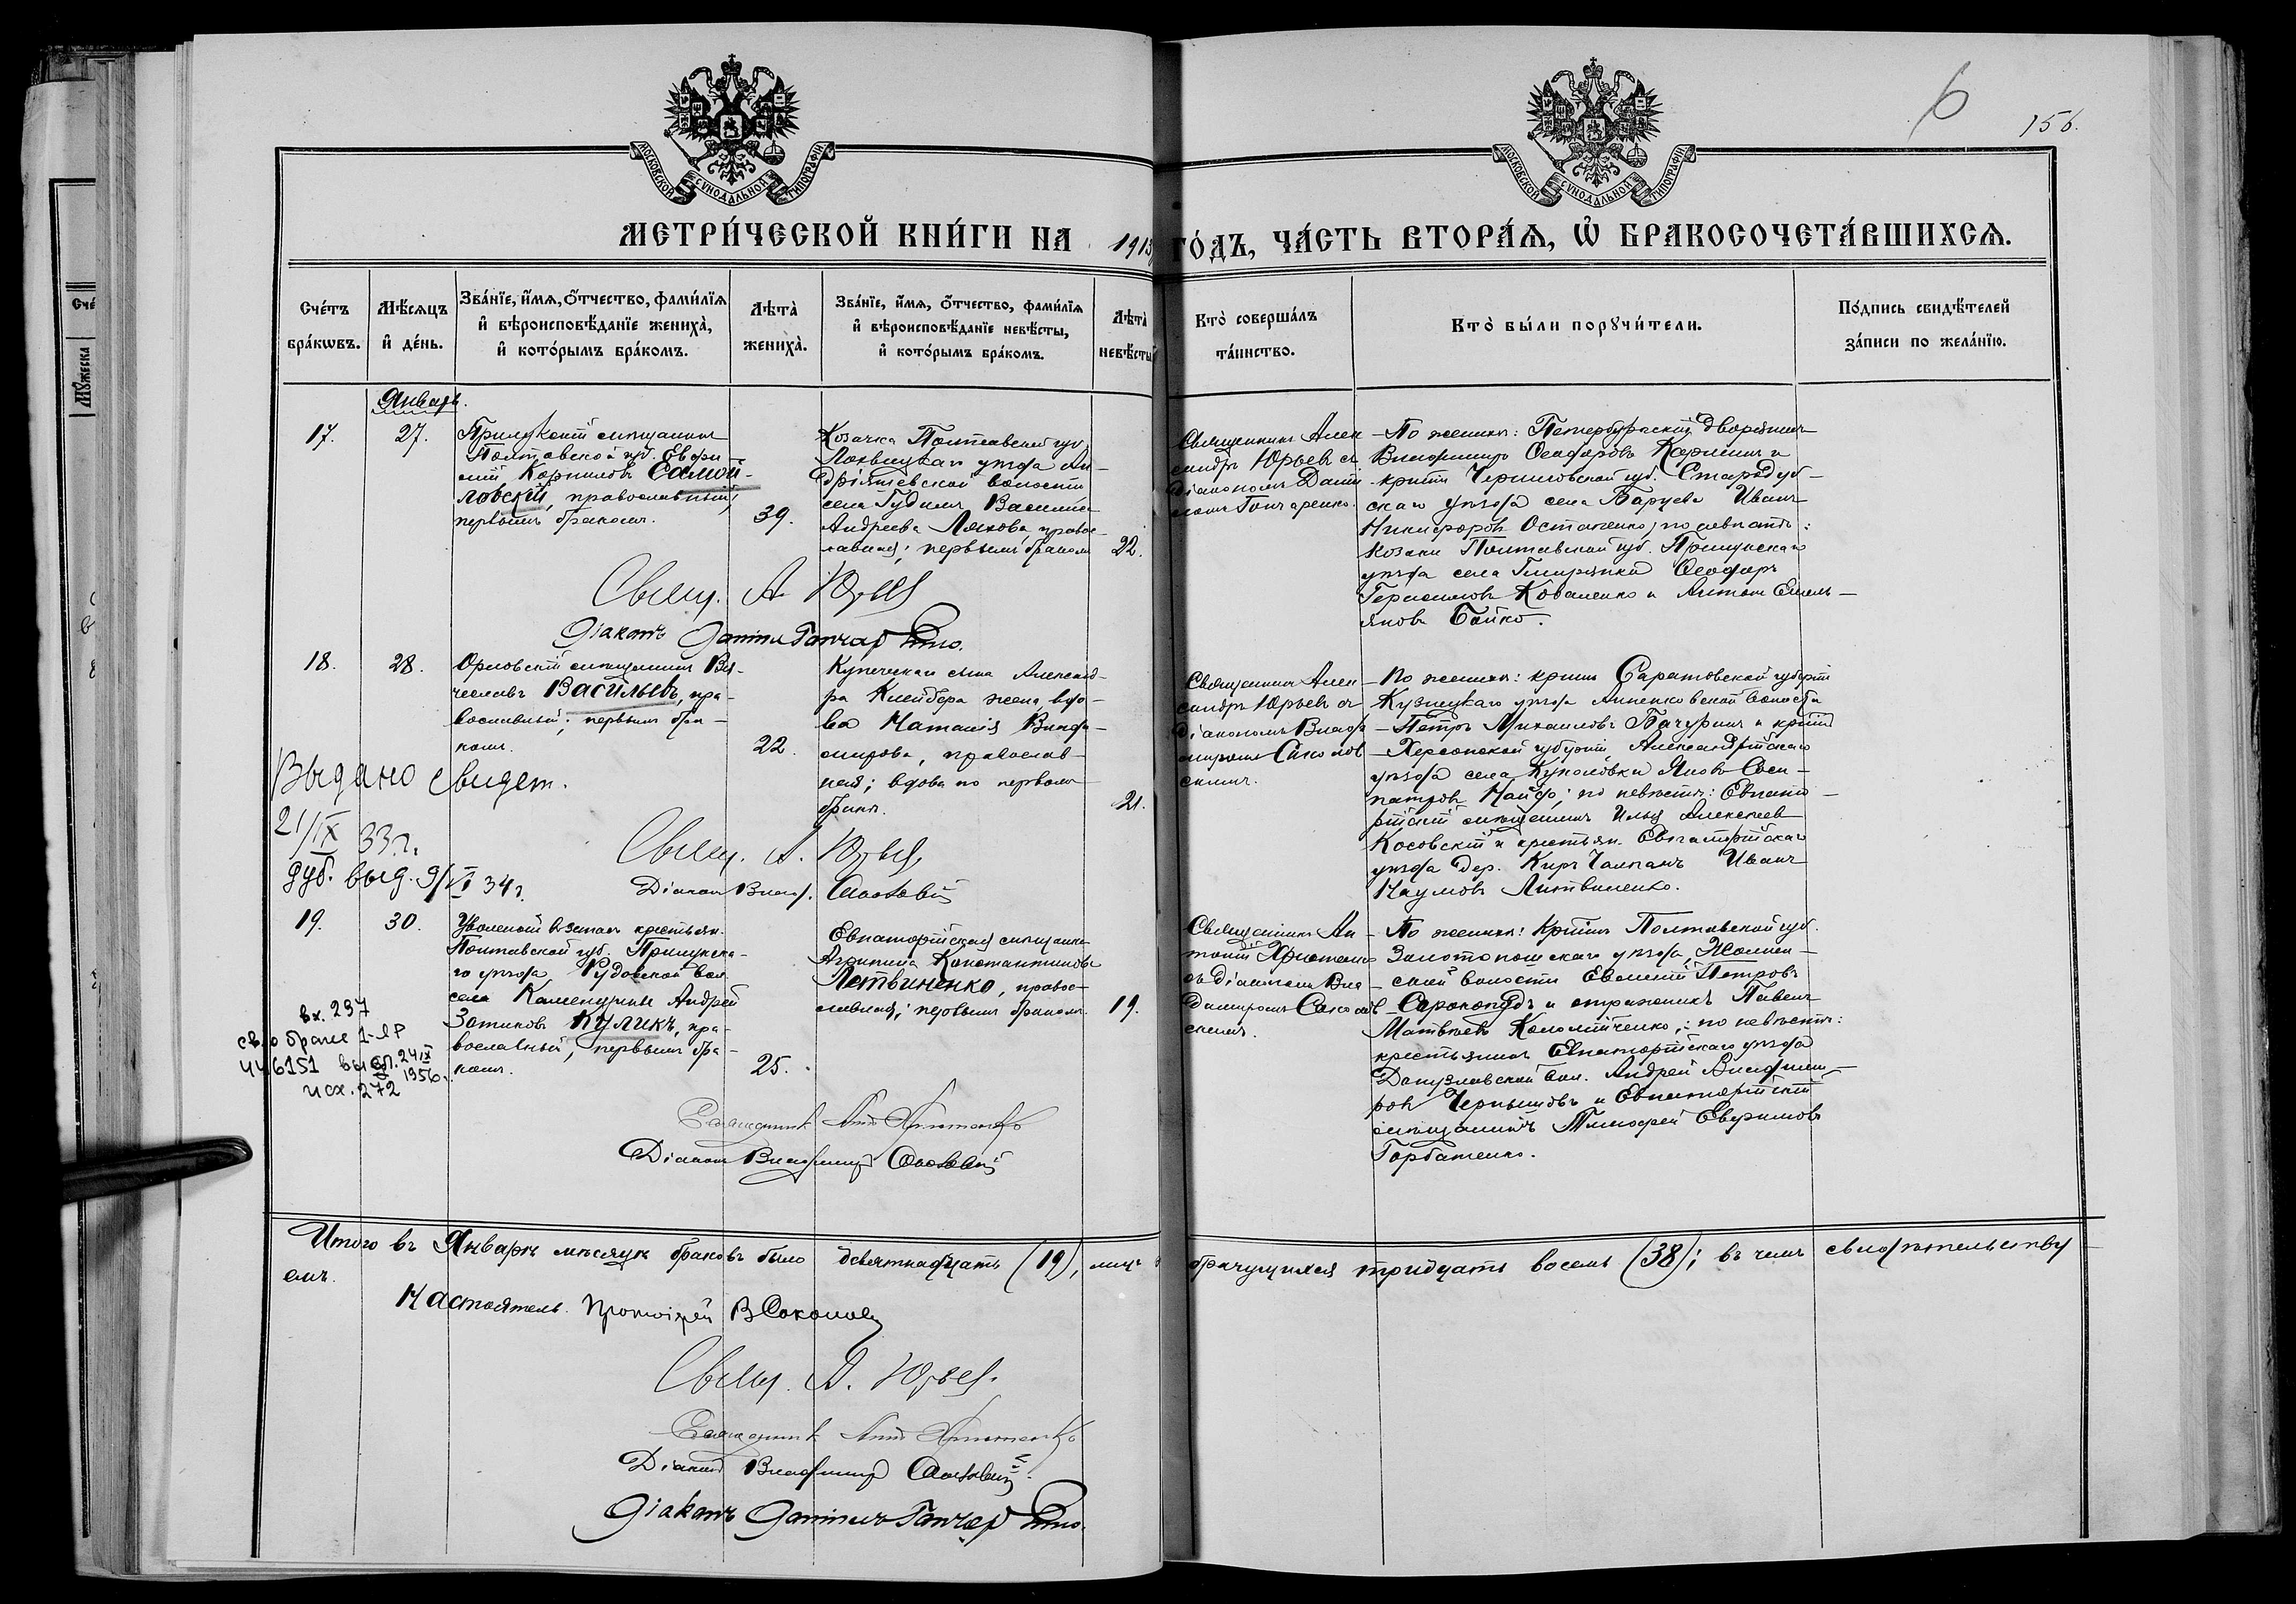 МОСКОВСКОЙ СѴНОДАЛЬНОЙ ТИПОГРАФІИ
МОСКОВСКОЙ СѴНОДАЛЬНОЙ ТИПОГРАФІИ
6
156.
МЕТРИ́ЧЕСКОЙ КНИ́ГИ НА 1913 ГО́ДЪ, ЧА́СТЬ ВТОРА́Ѧ, Ѡ҆ БРАКОСОЧЕТА́ВШИХСѦ.
Сче́тъ бра́кѡвъ.
Мѣ́сяцъ и҆ де́нь.
Зва́нїе, и҆́мѧ, ѻ҆́тчество, фами́лїѧ
и҆ вѣроисповѣ́данїе жениха̀,
и҆ кото́рымъ бра́комъ.
Лѣта̀ жениха̀.
Зва́нїе, и҆́мѧ, ѻ҆́тчество, фами́лїѧ
и҆ вѣроисповѣ́данїе невѣ́сты,
и҆ кото́рымъ бра́комъ.
Лѣта̀ невѣ́сты
Кто̀ соверша́лъ та́инство.
Кто̀ бы́ли порꙋчи́тели.
По́дпись свидѣ́телей
за́писи по жела́нїю.
Январь.
17.
27.
Прилукскій мѣщанинъ
Полтавской губ.
Корниловъ Самой-
ловскій, православный,
первымъ бракомъ.
39.
Козачка Полтавской губ.
Лохвицкаго уѣзда Ан-
дріяшевской волости
села Гудимъ Василиса
Андреева Ляхова, правос-
лавная; первымъ бракомъ
22.
Священникъ Алек-
сандръ Юрьевъ съ
діакономъ Дані-
ломъ Гончаренко.
По женихѣ: Петербургскій дворянинъ
Владиміръ Ѳеодоровъ
кр-нинъ Черниговской губ. Стародуб-
скаго уѣзда села Иванъ
Никифоровъ Остапенко, по невѣстѣ:
козаки Полтавской губ. Прилукскаго
уѣзда села Гмирянки Ѳеодоръ
Герасимовъ Коваленко и Антонъ Емель-
яновъ Бойко.
Свящ. А. Юрьев
Діаконъ Даніилъ Гончаренко.
18.
28.
Орловскій мѣщанинъ Вя-
чеславъ Васильевъ, пра-
вославный; первымъ бра-
комъ.
22.
Купеческаго сына Александ-
ра Клейбера жена, вдо-
ва Наталія Влади-
мирова, православ-
ная; вдова по первомъ
бракѣ.
21.
Священникъ Алек-
сандръ Юрьевъ съ
діакономъ Влади-
миромъ Соколов-
скимъ.
По женихѣ: кр-нинъ Саратовской губерніи
Кузнецкаго уѣзда Анненковской волости
Петръ Михаиловъ Бачуринъ и кр-нинъ
Херсонской губерніи Александрійскаго
уѣзда села Куколовки Яковъ Соси-
патровъ Найда; по невѣстѣ: Евпато-
рійскій мѣщанинъ Илья Алексѣевъ
Косовскій и крестьян. Евпаторійскаго
уѣзда дер. Киръ Чалпакъ Иванъ
Наумовъ Литвиненко.
Выдано свидет.
21/IX 33 г.
дуб. выд. 9/VI 34 г.
Свящ. А. Юрьев
Діакон Влад. Соколовскій
19.
30.
Уволеный в запасъ крестьян.
Полтавской губ. Прилукска-
го уѣзда, Рудовской вол.
села Андрей
Куликъ, пра-
вославный, первымъ бра-
комъ.
25.
Евпаторійская мѣщанка
Агрипина Константинова
Летвиненко, правос-
лавная; первымъ бракомъ.
19.
Священникъ Ан-
тоній
съ діакономъ Вла-
димиромъ Соколов-
скимъ.
По женихѣ: Кр-нинъ Полтавской губ.
Золотоношскаго уѣзда,
ской волости Евгеній Петровъ
Сорокопудъ и стражникъ Павелъ
Матвѣевъ Коломійченко; по невѣстѣ:
крестьянинъ Евпаторійскаго уѣзда
Донузлавской вол. Андрей Владими-
ровъ Чернышовъ и Евпаторійскій
мѣщанинъ Тимофей Евфимовъ
Горбатенко.
вх. 297
св. о браке 1-ЯР
446151 выд. 24 IX 1956 г.
исх. 272
Діакон Владимир Соколовскій
Итого въ Январѣ мѣсяцѣ браковъ было девятнадцать (19), лицъ брачущихся тридцать восемь (38); въ чемъ свидѣтельству-
емъ.
Настоятель Протоіерей В Соколов
Свящ. А. Юрьев.
Діакон Владимир Соколовскій.
Діаконъ Даніилъ Гончаренко.